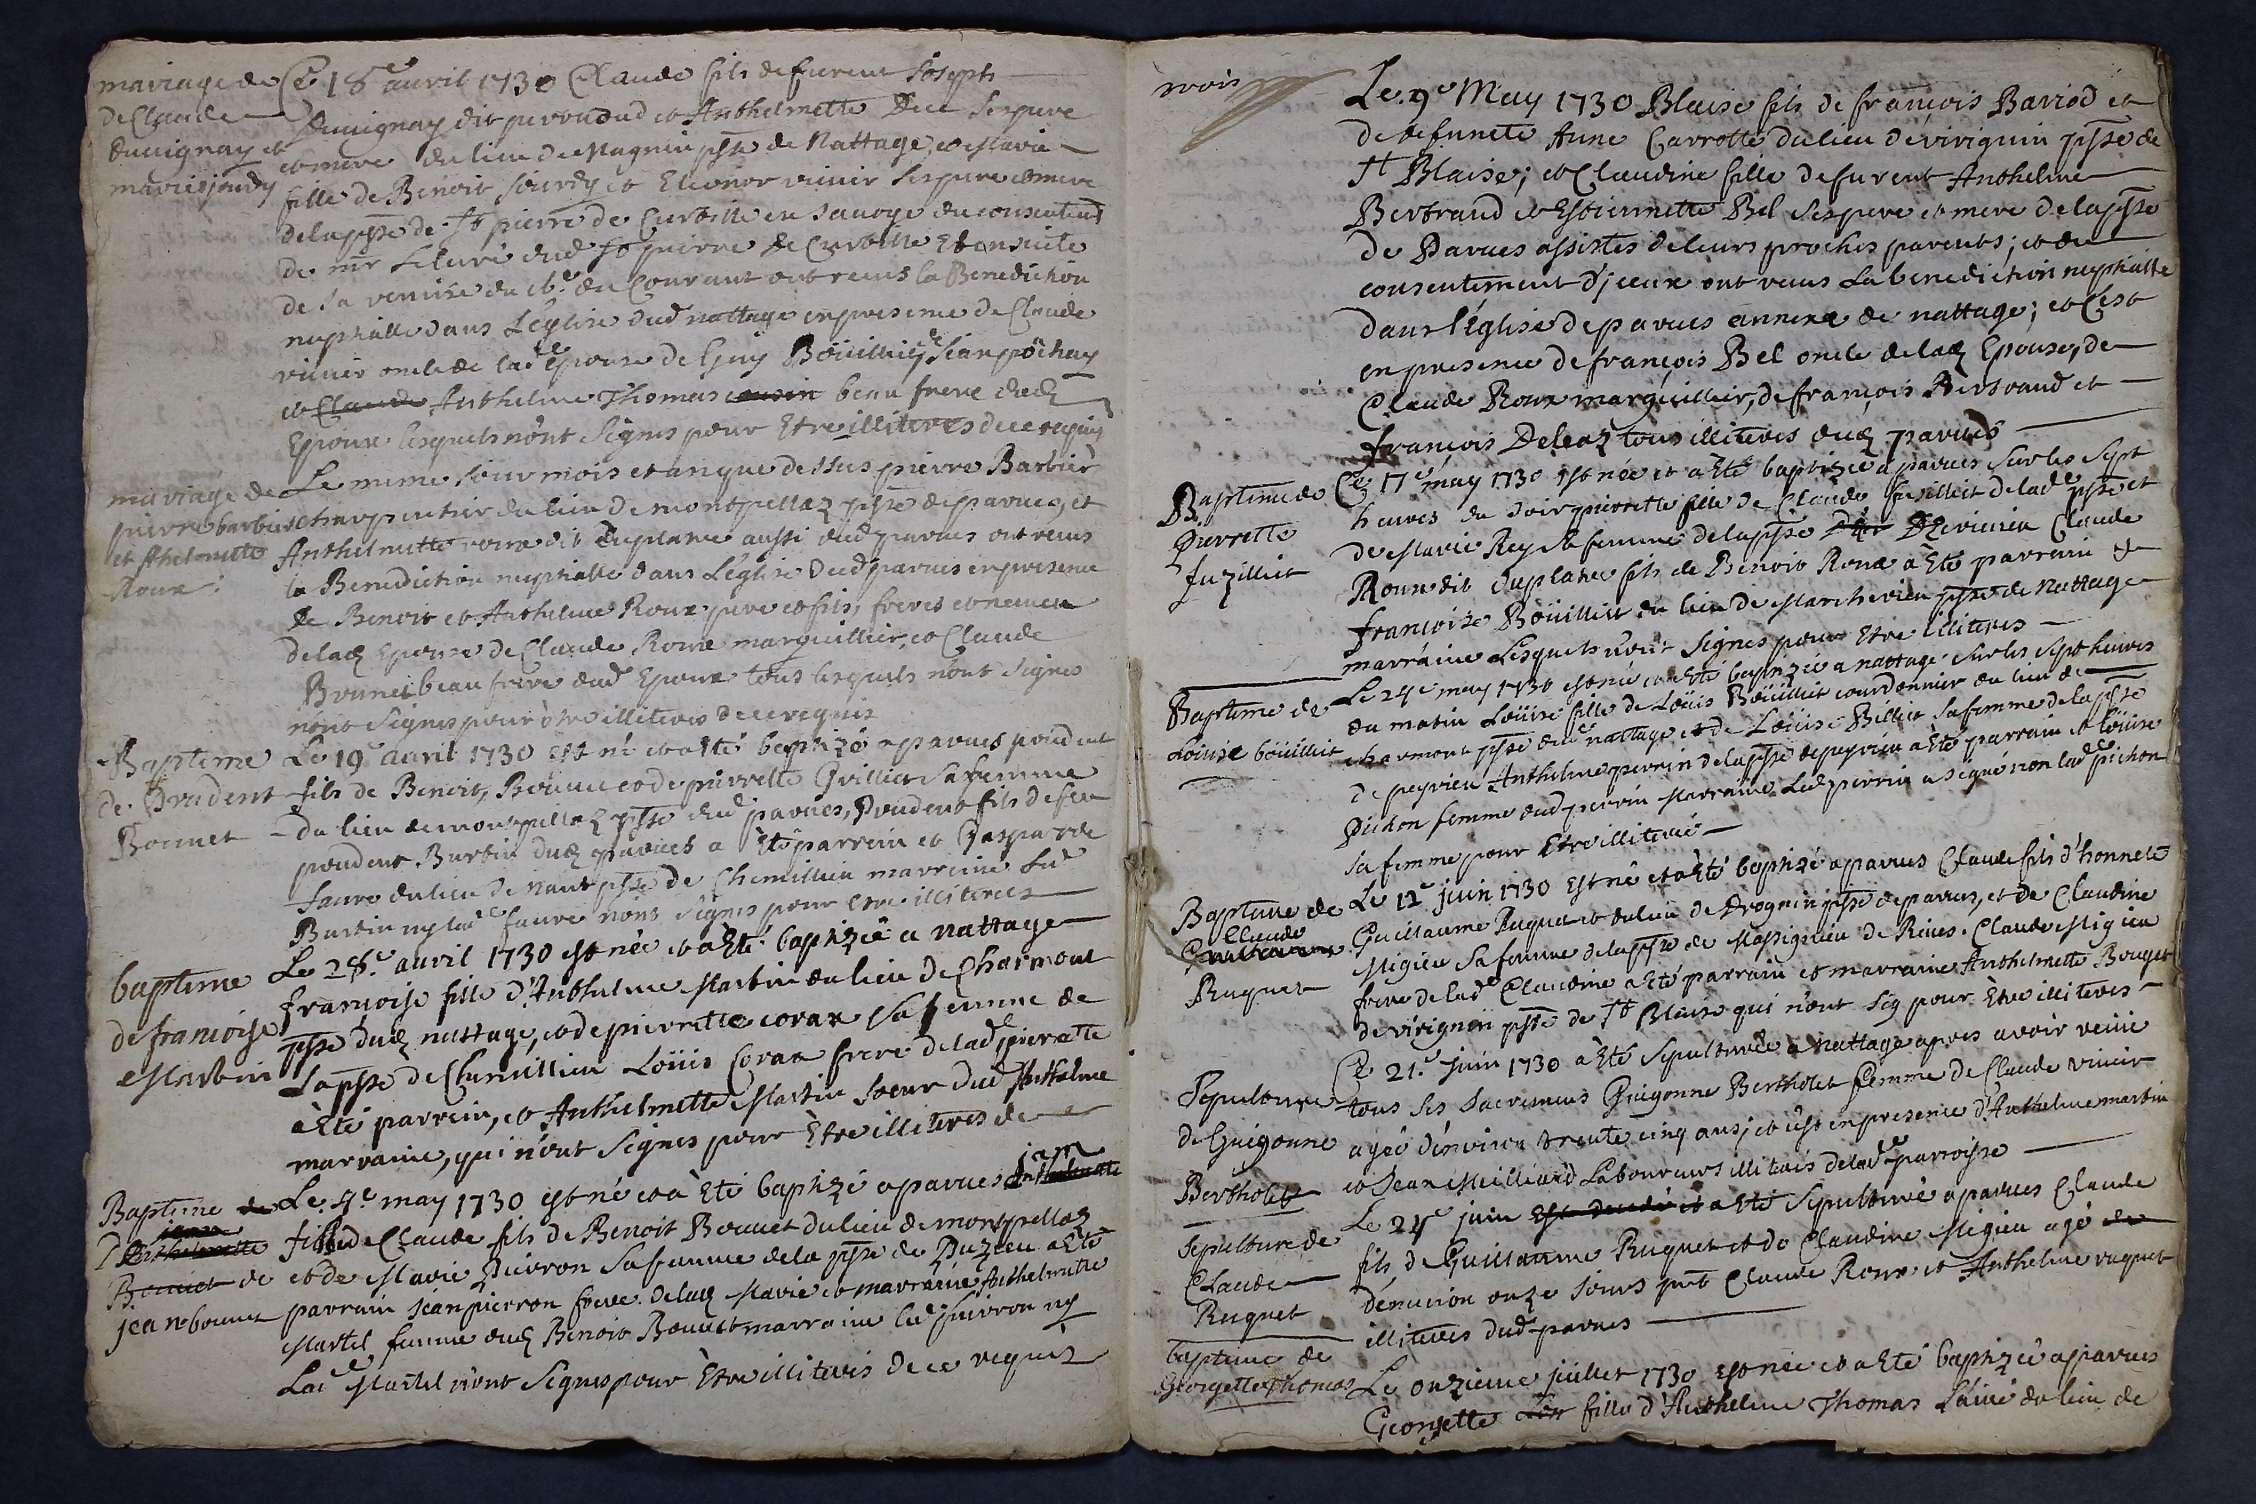 mariage de
de Claude
Duvignay et
marie jourdy
Ce 18e avril 1730 Claude fils de furent Joseph
Duvignay dit perroudud et Anthelmette Duc ses pere
et mere du lieu de Magnin psse de Nattage, et Marie
fille de Benoit Jourdy et Eleonor vuivir ses pere et mere
de la psse de St pierre de Curtille en Savoye du consentement
de mr le Curé dud St pierre de Curtille et ensuite
de sa remise du 16e du Courant ont receus la Benediction
nuptialle dans L'église dud nattage en presence de Claude
vuivir oncle de lade Epouse de Guy Boüillier Jean pochay
et Claude Anthelme Thomas cousin beau frere dud
Epoux lesquels n'ont Signes pour Etre illiteres de ce requis
mariage de
pierre barbier
et Athelmette
Roux
Le meme Jour mois et an que dessus pierre Barbier
charpentier du lieu de montpellaz psse de parves, et
Anthelmette roux dit Duplatre aussi dud parves ont receus
la Benediction nuptialle dans L'église dud parves en presence
de Benoit et Anthelme Roux pere et fils, freres et neveu
de lad Epouse de Claude Roux marguillier, et Claude
Brunet beau frere dud Epoux tous lesquels n'ont Signe
nont Signes pour être illiteres de ce requis
Bapteme
de Prudent
Bonnet
Le 19e avril 1730 est né et a été baptizé a parves prudent
fils de Benoit Bonnet et de pierrette Grillier Sa femme
du lieu de montpellaz psse dud parves, Prudent fils de feu
prudent Burtin dud parves a Eté parrein et Gasparde
faure du lieu de Nant psse de Chemillieu marreine Led
Burtin ny lade faure n'ont Signes pour etre illiteres
baptéme
de francoise
Martin
Le 28e avril 1730 est née et a Eté baptizée a nattage
francoise fille d'Anthelme Martin du lieu de Charmont
psse dud nattage, et de pierrette corax Sa femme de
la psse de Chemillieu Loüis Corax frere de lade pierrette
a Eté parrein, et Anthelmette Martin Soeur dud Anthelme
marraine, qui n'ont Signes pour Etre illiteres de
Bapteme de
jean
Anthelmette
Bonnet de
jean bonnet
Le 4e may 1730 est né et a Eté baptizé a parves Anthelmette jean
fils de Claude fils de Benoit Bonnet du lieu de montpellaz
et de Marie Pierron Sa femme de la psse de Puzieu a Eté
parrain jean pierron frere de lad Marie et marraine Anthelmette
Martel femme dud Benoit Bonnet marraine led pierron ny
Lade Martel n'ont Signes pour Etre illiteres de ce requis
trois
Le 9e May 1730 Blaise fils de françois Barriod et
de defuncte Anne Carrotte du lieu de virignin psse de
St Blaise; et Claudine fille de furent Anthelme
Bertrand et Estiennette Bel ses pere et mere de la psse
de Parves assistes de leurs proches parents; et du
consentement d'jceux ont receus La benediction nuptialle
dans l'église de parves annexe de nattage; et C'est
en presence de françois Bel oncle de lad Epouse, de
Claude Roux marguillier, de françois Bertrand et
françois Deleaz tous illiteres dud parves
Baptéme de
Pierrette
fuzilliet
Ce 17e may 1730 est née et a Eté baptizée a parves Sur les Sept
heures du Soir pierrette fille de Claude fusilliet de lade psse et
de Marie Rey Sa femme de la psse D'izieu Claude
Roux dit duplatre fils de Benoit Roux a Eté parrein et
françoise Boüillier du lieu de Marchevieu psse de nattage
marraine Lesquels n'ont Signes pour Etre illiteres
Bapteme de
Loüise boüillier
Le 24e may 1730 est née et a Eté baptizée a nattage Sur les Sept heures
du matin Loüise fille de Loüis Boüillier courdonnier du lieu de
charmont psse dud nattage et de Loüise Billiet Sa femme de la psse
de peyrieu Anthelme perrin de la psse de peyrieu a Eté parrain et loüise
Pichon femme dud perrin Marraine Led perrin a signé non lade pichon
Sa femme pour Etre illiteré
Bapteme de
Claude
Guillaume
Ruguet
Le 12e juin 1730 Est né et a Eté baptizé a parves Claude fils d'honnete
Guillaume Ruguet et du lieu de Drognin psse de parves, et de Claudine
Migieu Sa femme de la psse de Massignieu de Rives. Claude Migieu
frere de lade Claudine a Eté parrain et marraine Anthelmette Bouget
de virignin psse de St Blaise qui n'ont Sig pour Etre illiteres
Sepulture
de Guigonne
Bertholet
Ce 21e juin 1730 a Eté Sepulturée a nattage apres avoir receüe
tous Ses Sacremens Guigonne Bertholet femme de Claude vuivir
agée d'environ trente cinq ans; et c'est en presence d'Anthelme martin
et Jean Meilliard Laboureurs illiterés de lade parroisse
Sepulture de
Claude
Ruguet
Le 24e juin est decedé et a Eté Sepulturé a parves Claude
fils de Guillaume Ruguet et de Claudine Migieu agé de
d'environ onze Jours pnt Claude Roux et Anthelme ruguet
illiteres dud parves
bapteme de
Georgette Thomas
Le onzieme juillet 1730 est née et a Eté baptizée a parves
Georgette fille d'Anthelme Thomas L'ainé du lieu de